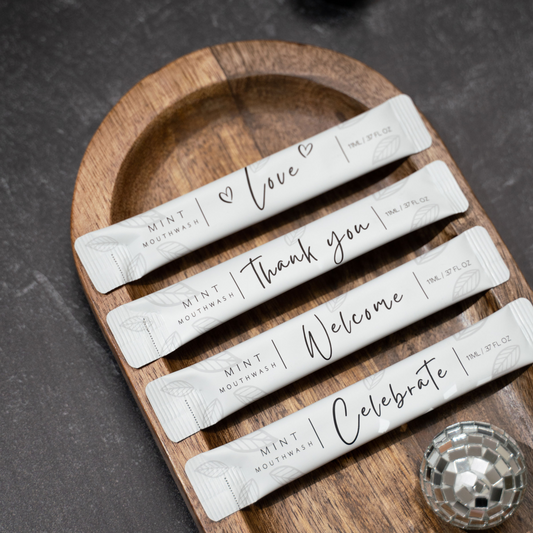 MINT
MOUTHWASH
Love
11ML / .37 FL OZ
MINT
MOUTHWASH
Thank you
11ML / .37 FL OZ
MINT
MOUTHWASH
Welcome
11ML / .37 FL OZ
MINT
MOUTHWASH
Celebrate
11ML / .37 FL OZ